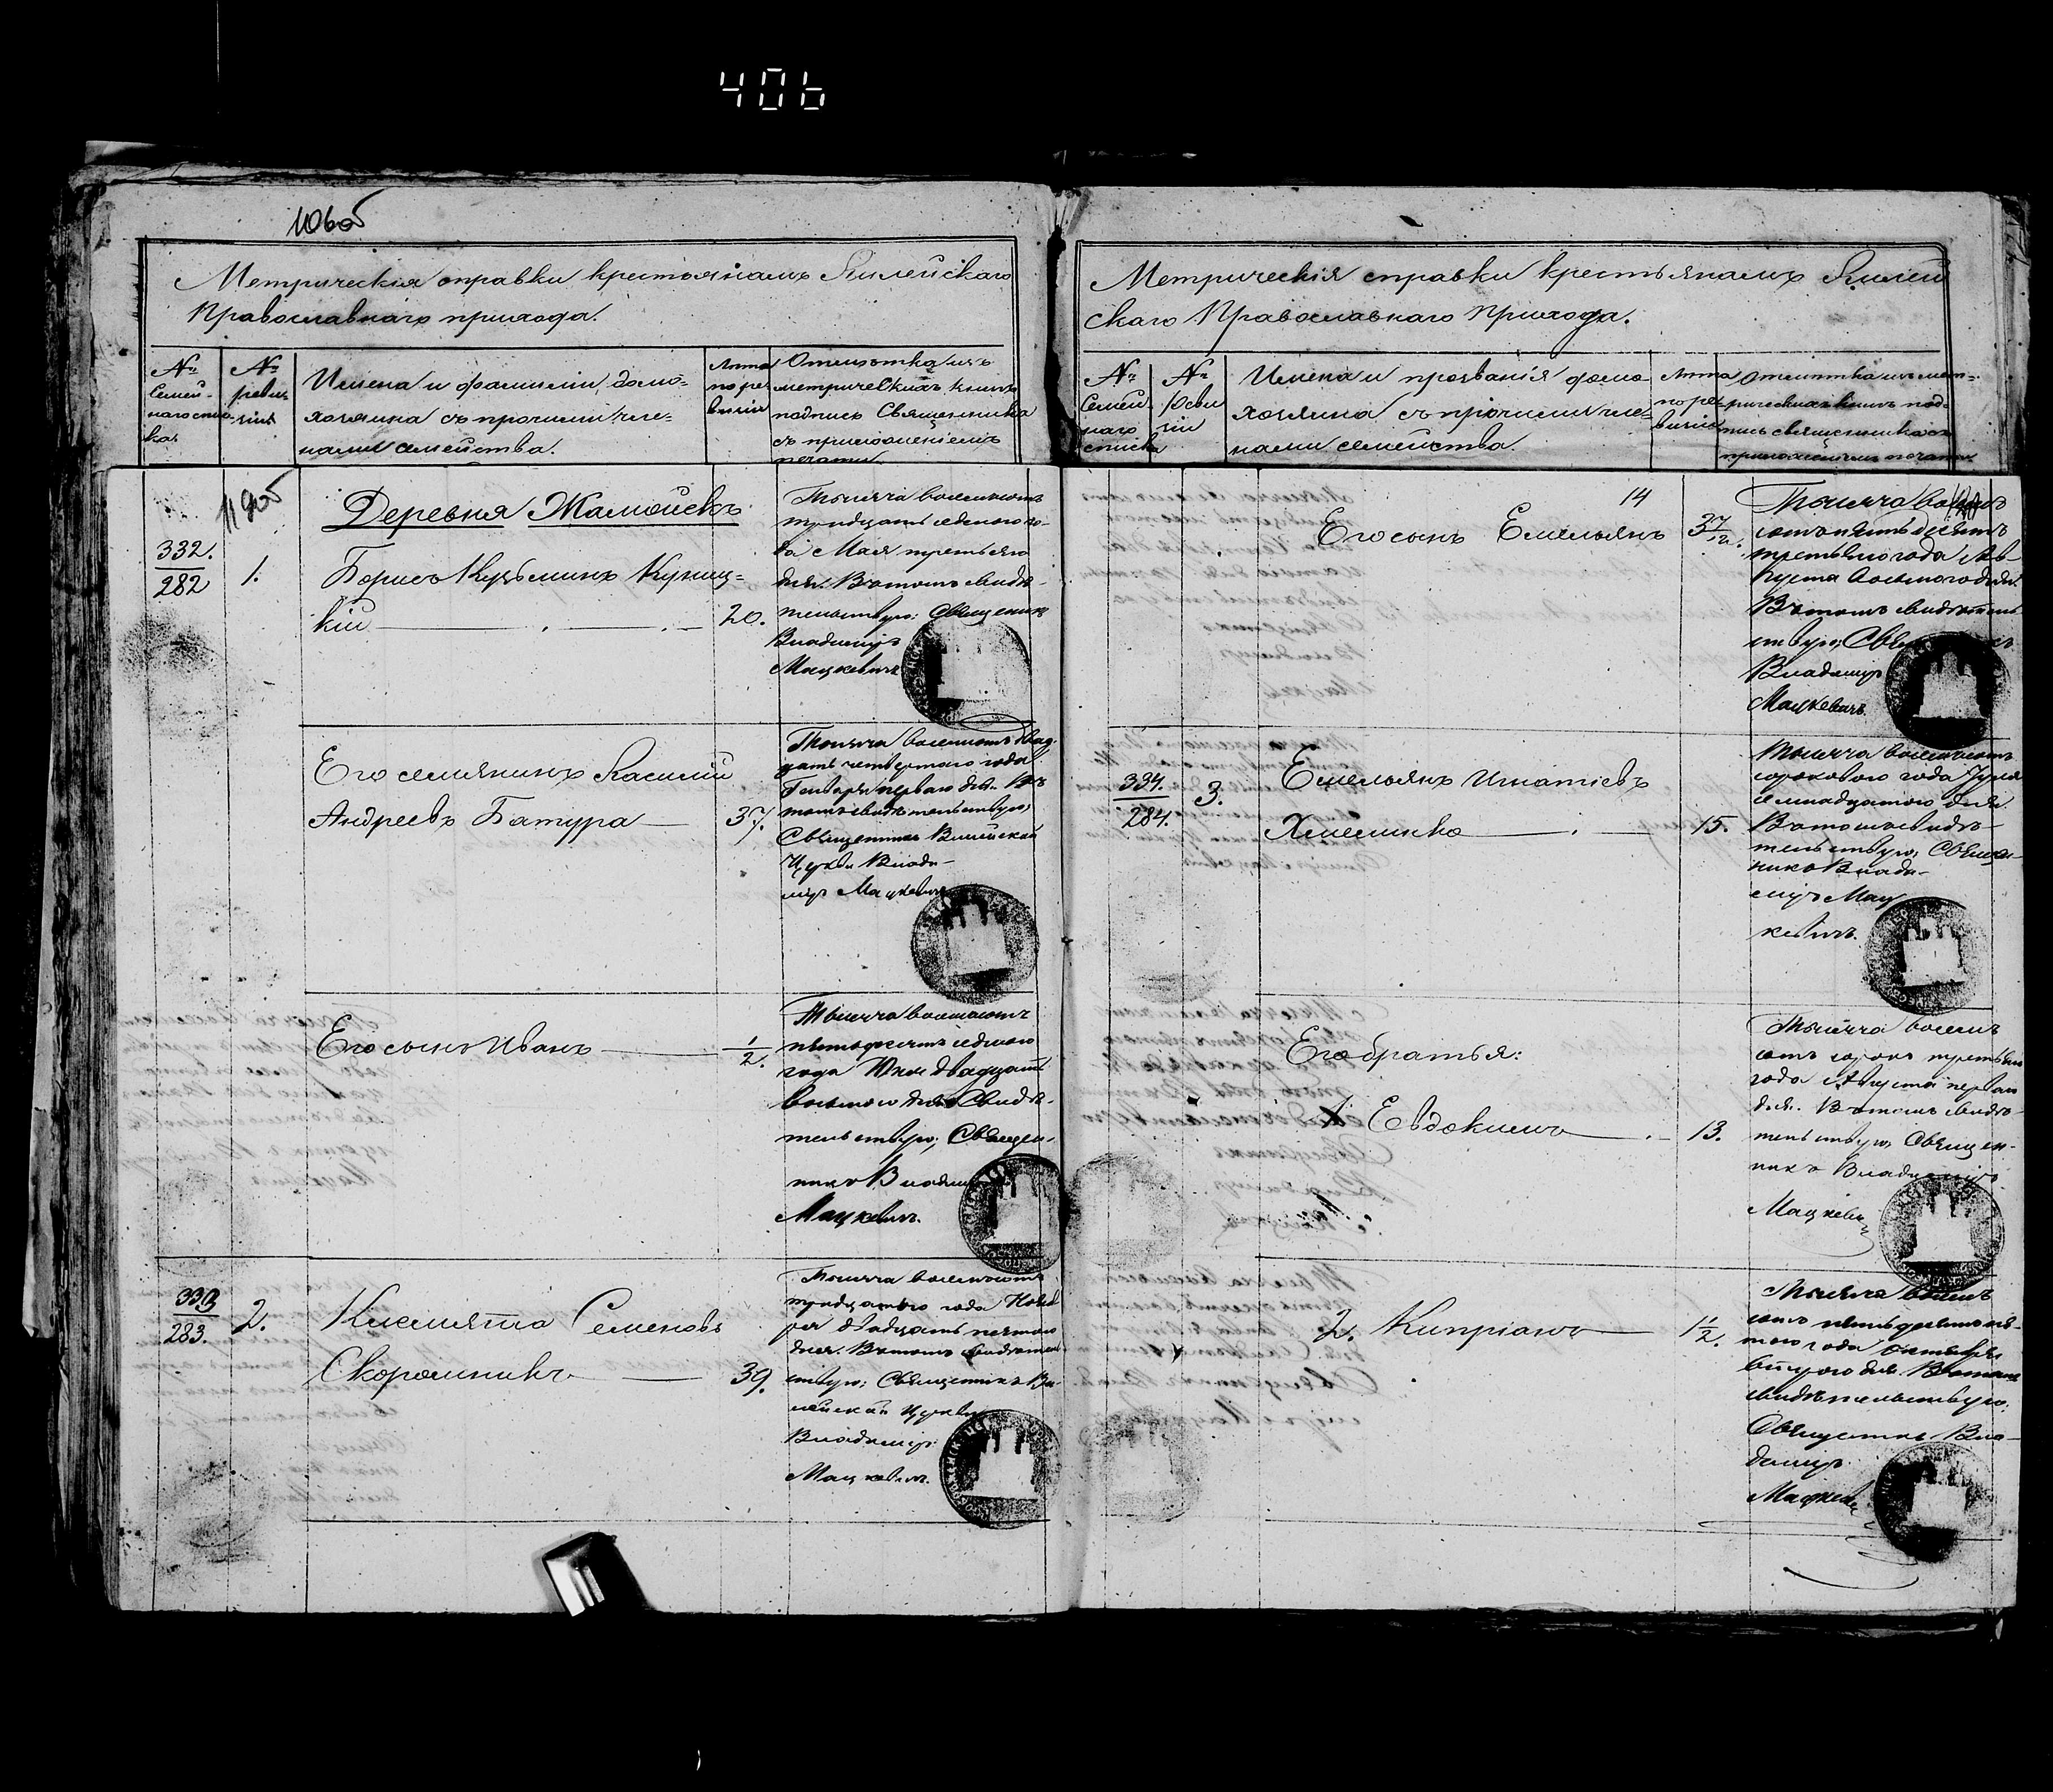 406
106об
Метрическія справки крестьянамъ Вилейскаго
Православнаго прихода.
№
Семей-
наго спис-
ка
№
ревиз-
ніи
Имена и фамиліи домо-
хозяина съ прочими чле-
нами семейства.
Лѣта
по ре
визіи
Отмѣтка изъ
метрическихъ книгъ
подпись Священника
съ приложеніемъ
печати.
Деревня
332.
282
1.
Борисъ Кузьминъ Куниц-
кій 20.
Тысяча восемьсотъ
тридцать седьмого го-
да Мая третьяго
дня. Въ томъ свидѣ-
тельствую: Священникъ
Владиміръ
Мацкевичъ
Его семянинъ Василій
Андреевъ Батура 37.
Тысяча восемьсотъ двад-
цать четвертаго года
Генваря перваго дня. Въ
томъ свидѣтельствую,
Священникъ Вилейской
Церкви Влади-
міръ Мацкевичъ
Его сынъ Иванъ 1/2.
Тысяча восемьсотъ
пятьдесятъ седьмого
года Юня двадцать
восьмого дня Свидѣ-
тельствую, Священ-
никъ Владиміръ
Мацкевичъ.
333
283.
2.
Климята Семеновъ
Скоромникъ 39.
Тысяча восемьсотъ
тридцатого года Нояб
ря двадцать пятого
дня. Въ томъ свидѣтель
ствую; Священникъ Ви-
лейской Церкви
Владиміръ
Мацкевичъ.
Метрическія справки крестьянамъ Вилей
скаго Православнаго Прихода.
№
Семей
наго
списка
№
Реви
зіи
Имена и прозванія домо-
хозяина съ прочими чле-
нами семейства.
Лѣта
по ре-
визіи
Отмѣтка изъ мет-
рическихъ книгъ под-
пись священника съ
приложеніемъ печати
14
Его сынъ Емельянъ 3 7/12.
Тысяча восемь
сотъ пятьдесятъ
третьяго года Ав
густа восьмого дня.
Въ томъ свидѣтель
ствую, Священникъ
Владиміръ
Мацкевичъ.
334.
284.
3.
Емельянъ Игнатіевъ
Хмелинко 15.
Тысяча восемьсотъ
сорокового года Іуля
семнадцатого дня
Въ томъ свидѣ-
тельствую, Священ-
никъ Влади-
міръ Мац
кевичъ.
Его братья:
1. Евдокимъ 13.
Тысяча восемь
сотъ сорокъ третьяго
года Августа перваго
дня. Въ томъ свидѣ-
тельствую, Священ-
никъ Владиміръ
Мацкевичъ
2. Кипріанъ 1 1/2.
Тысяча восемь
сотъ пятьдесятъ пя-
того года Октября
второго дня. Въ томъ
свидѣтельствую.
Священникъ Вла-
диміръ
Мацкевичъ